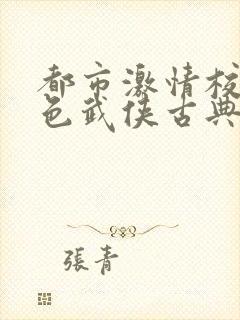 都市激情校
色武侠古典
張青